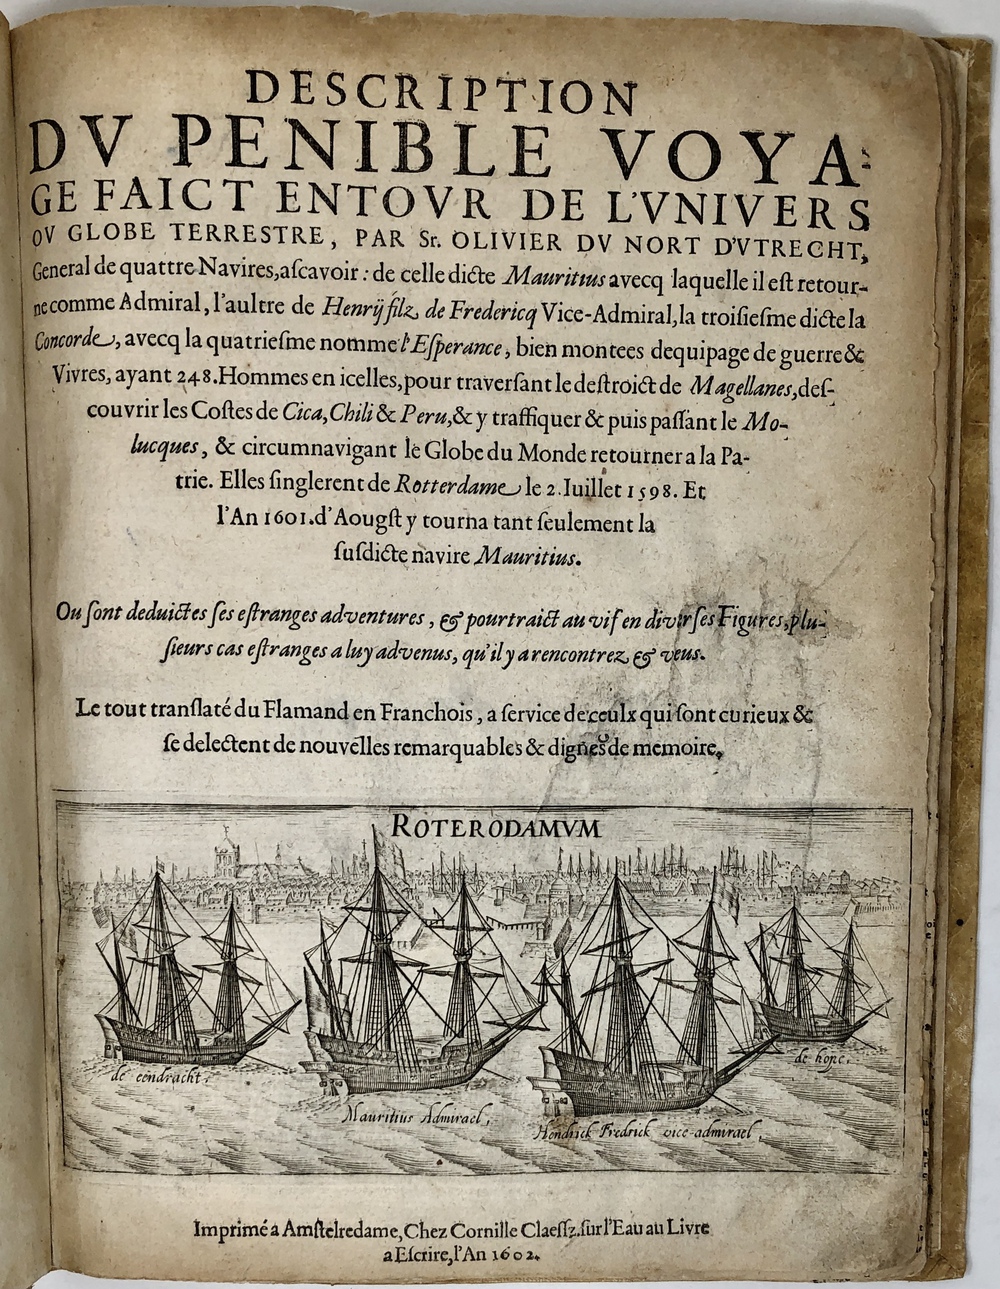 DESCRIPTION
DV PENIBLE VOYA-
GE FAICT ENTOVR DE L'VNIVERS
OV GLOBE TERRESTRE, PAR Sr. OLIVIER DV NORT D'VTRECHT,
General de quattre Navires, aſcavoir : de celle dicte Mauritius avecq laquelle il eſt retour-
ne comme Admiral, l'aultre de Henrÿ filz de Fredericq Vice-Admiral, la troiſieſme dicte la
Concorde, avecq la quatrieſme nomme l'Eſperance, bien montees dequipage de guerre &
Vivres, ayant 248. Hommes en icelles, pour traverſant le deſtroict de Magellanes, deſ-
couvrir les Coſtes de Cica, Chili & Peru, & y traffiquer & puis paſſant le Mo-
lucques, & circumnavigant le Globe du Monde retourner a la Pa-
trie. Elles ſinglerent de Rotterdame le 2. Iuillet 1598. Et
l'An 1601. d'Aougſt y tourna tant ſeulement la
ſuſdicte navire Mauritius.
Ou ſont deduictes ſes eſtranges adventures, & pourtraict au vif en diverſes Figures, plu-
ſieurs cas eſtranges a luy advenus, qu'il y a rencontrez & veus.
Le tout tranſlaté du Flamand en Franchois, a ſervice de ceulx qui ſont curieux &
ſe delectent de nouvelles remarquables & dignes de memoire.
ROTERODAMVM
de eendracht.
Mauritius Admirael,
Hendrick Fredrick vice-admirael,
de hope.
Imprimé a Amſtelredame, Chez Cornille Claeſſz. ſur l'Eau au Livre
a Eſcrire, l'An 1602.